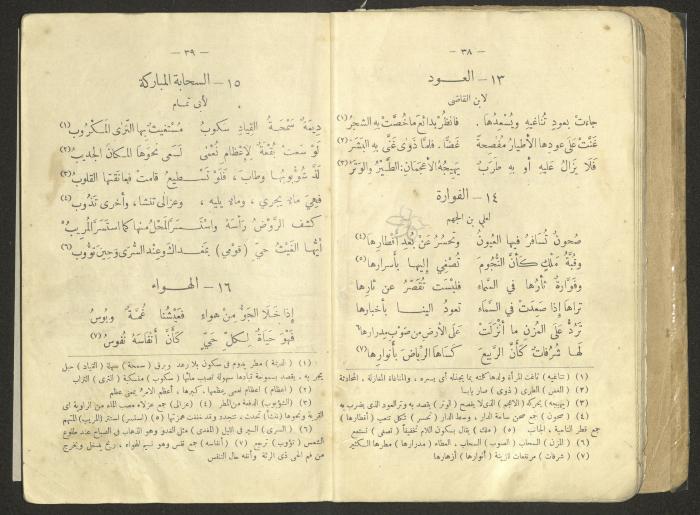 — ٣٨ —
١٣ — العـــود
لابن القاضى
جاءت بعودٍ تُناغيه ويُسْعِدُها . فانظُرْ بدائعَ ما خُصَّتْ به الشجرُ (١)
غَنَّتْ على عودِها الأطيارُ مُفصِحةً غَضًّا . فلمَّا ذَوَى غَنَّى بهِ البشَرُ (٢)
فلا يزالُ عليهِ أو بهِ طرَبٌ يَهيجُهُ الأعجمانِ : الطَّيْرُ والوَتَرُ (٣)
١٤ — الفوارة
لعلي بن الجهم
صُحونٌ تُسافِرُ فيها العيونُ وتحسُرُ عنْ بُعْدِ أقطارِها (٤)
وقُبَّةُ مَلْكٍ كأنَّ النُّجومَ تُصْغِي إليها بأسرارِها (٥)
وفَوَّارَةٌ ثأرُها في السَّماءِ فليْسَتْ تُقَصِّرُ عن ثارِها
تراها إذا صَعِدَتْ في السَّماءِ تعودُ إلينا بأخبارِها
تَرُدُّ على المُزْنِ ما أَنْزَلَتْ على الأرضِ من صَوْبِ مِدرارِها (٦)
لَها شُرُفاتٌ كأنَّ الرَّبيعَ كساها الرِّياضَ بأنوارِها (٧)
(١) (تناغيه) ناغت المرأة ولدها كلمته بما يعجبه أى يسره ، والمناغاة المغازلة . المحادثة
(٢) الغض (الطرى) (ذوى) صار يابسا
(٣) (يهيجه) يحركه (الأعجم) الذى لا يفصح (الوتر) يقصد به وتر العود الذى يضرب به
(٤) (صحون) جمع صحن ساحة الدار ، وسط الدار (تحسر) تكل تتعب (أقطارها)
جمع قطر الناحية ، الجانب (٥) (ملك) يقال بسكون اللام تخفيفاً (تصغى) تستمع
(٦) (المزن) السحاب (الصوب) السحاب ، العطاء (مدرارها) مطرها الكثير
(٧) (شرفات) مرتفعات للزينة (أنوارها) أزهارها
— ٣٩ —
١٥ — السحابة المباركة
لأبى تمام
دِيمَةٌ سَمْحَةُ القِيادِ سَكُوبُ مُسْتَغِيثٌ بها الثَّرَى المَكْروبُ (١)
لوْ سَعَتْ بُقْعَةٌ لإعْظامِ نُعْمَى لَسَعَى نحوَها المكانُ الجديبُ (٢)
لَذَّ شُؤْبُوبُها وطابَ ، فَلَوْ تَسْطيعُ قامتْ فعانقَتْها القلوبُ (٣)
فهيَ ماءٌ يجري ، وماءٌ يليهِ ، وعزالى تنشأ ، وأخرى تذُوبُ (٤)
كشفَ الرَّوْضُ رأسَهُ واسْتَسَرَّ المَحْلُ منها كما استسَرَّ المُريبُ (٥)
أيُّها الغَيْثُ حيِّ (قومي) بمَغداكَ وعِندَ السُّرَى وحِينَ تَؤُوبُ (٦)
١٦ — الهـــواء
إذا خلا الجوُّ من هواءٍ فعَيْشُنا غُمَّةٌ وبُوسُ
فهْوَ حياةٌ لِكلِّ حيٍّ كأنَّ أنفاسَهُ نُفوسُ (٧)
(١) (الديمة) مطر يدوم فى سكون بلا رعد وبرق (سمحة) سهلة (القياد) حبل
يجر به . يقصد بسهولة قيادها سهولة تصبب مائها (سكوب) منسكبة (الثرى) التراب
(٢) (اعظام) اعظام نعمى يعظمها ، كبرها ، أعظم الأمر بمعنى عظم
(٣) (الشؤبوب) الدفعة من المطر (٤) (عزالى) جمع عزلاء مصب الماء من الراوية أى
القربة ونحوها (تنشأ) تحدث ، تتجدد وقد خففت همزتها (٥) (استسر) استتر (المريب) المتهم
(٦) (السرى) السير فى الليل (المغدى) مثل الغدو وهو الذهاب فى الصباح عند طلوع
الشمس (تؤوب) ترجع (٧) (أنفاسه) جمع نفس وهو نسيم الهواء ، ريح يدخل ويخرج
من فم الحى ذى الرئة وأنفه حال التنفس